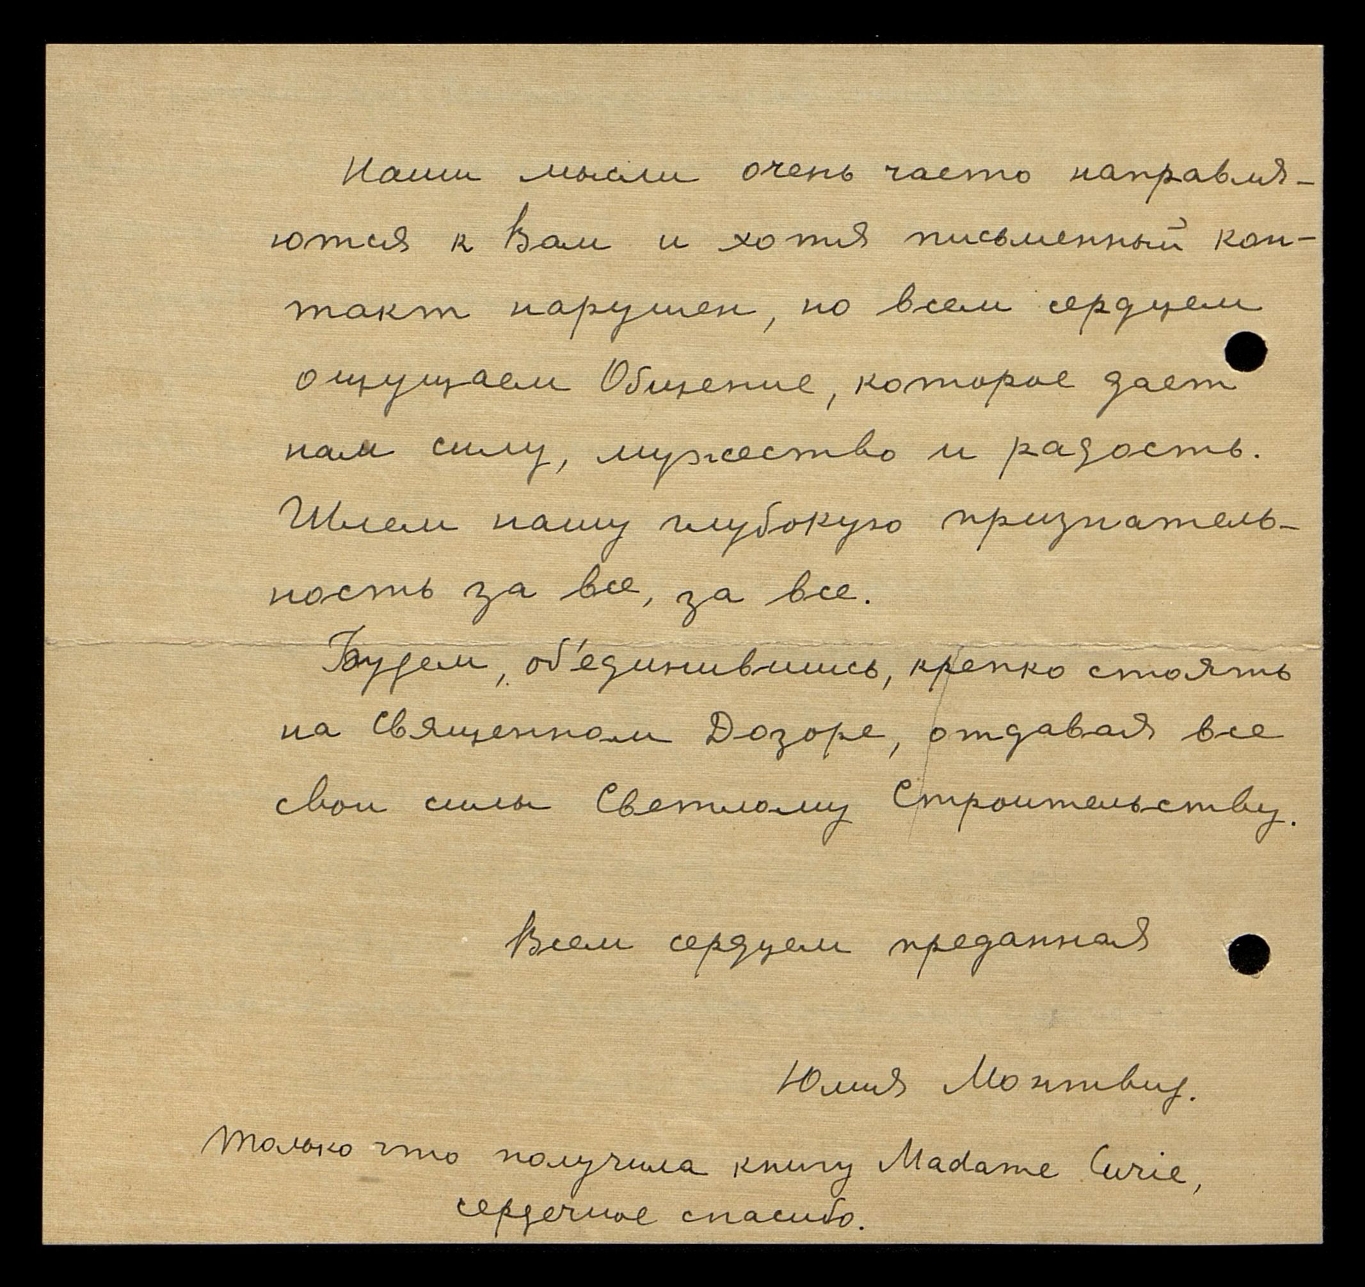 Наши мысли очень часто направля-
ются к Вам и хотя письменный кон-
такт нарушен, но всем сердцем
ощущаем Общение, которое дает
нам силу, мужество и радость.
Шлем нашу глубокую признатель-
ность за все, за все.
Будем, об'единившись, крепко стоять
на Священном Дозоре, отдавая все
свои силы Светлому Строительству.
Всем сердцем преданная
Юлия Монтвид.
Только что получила книгу Madame Curie,
сердечное спасибо.